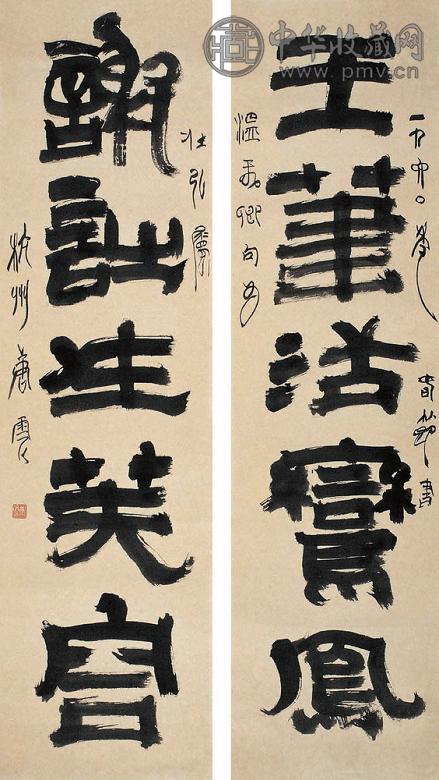 中华收藏网
www.pmv.cn
王筆活鸞鳳
一九八〇年
春節書
溫飛卿句
謝詩生芙容
壯弘屬
杭州唐雲